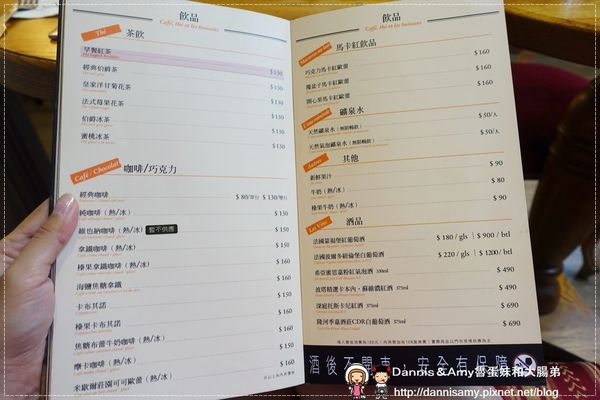 飲品
Café, thé et les boissons
Thé
茶飲
早餐紅茶 $130
經典伯爵茶 $130
皇家洋甘菊花茶 $130
法式莓果花茶 $130
伯爵冰茶 $130
蜜桃冰茶 $130
Café / Chocolat
咖啡/巧克力
經典咖啡 $80/單份 $130/雙份
純咖啡（熱/冰） $130
維也納咖啡（熱/冰） 暫不供應 $150
拿鐵咖啡（熱/冰） $150
榛果拿鐵咖啡（熱/冰） $160
海鹽焦糖拿鐵 $160
卡布其諾 $150
榛果卡布其諾 $160
焦糖布蕾牛奶咖啡（熱/冰） $150
摩卡咖啡（熱/冰） $160
米歇爾莊園可可（熱/冰） $150
飲品
Café, thé et les boissons
馬卡紅飲品
巧克力馬卡紅歐蕾 $160
覆盆子馬卡紅歐蕾 $160
開心果馬卡紅歐蕾 $160
礦泉水
天然礦泉水（無限暢飲） $50/人
天然氣泡礦泉水（無限暢飲） $50/人
Autres
其他
新鮮果汁 $90
牛奶（熱/冰） $80
榛果牛奶（熱/冰） $90
Les Vins
酒品
法國蒙福堡紅葡萄酒 $180 / gls | $900 / btl
法國波爾多紐倫堡白葡萄酒 $220 / gls | $1200 / btl
希亞蜜思嘉粉紅氣泡酒 330ml $490
波塔精選卡本內．蘇維濃紅酒 375ml $490
深庭托斯卡尼紅酒 375ml $690
隆河季嘉酒莊CDR白葡萄酒 375ml $690
酒後不開車 安全有保障
Dannis＆Amy魯蛋妹和大腸弟
http://dannisamy.pixnet.net/blog